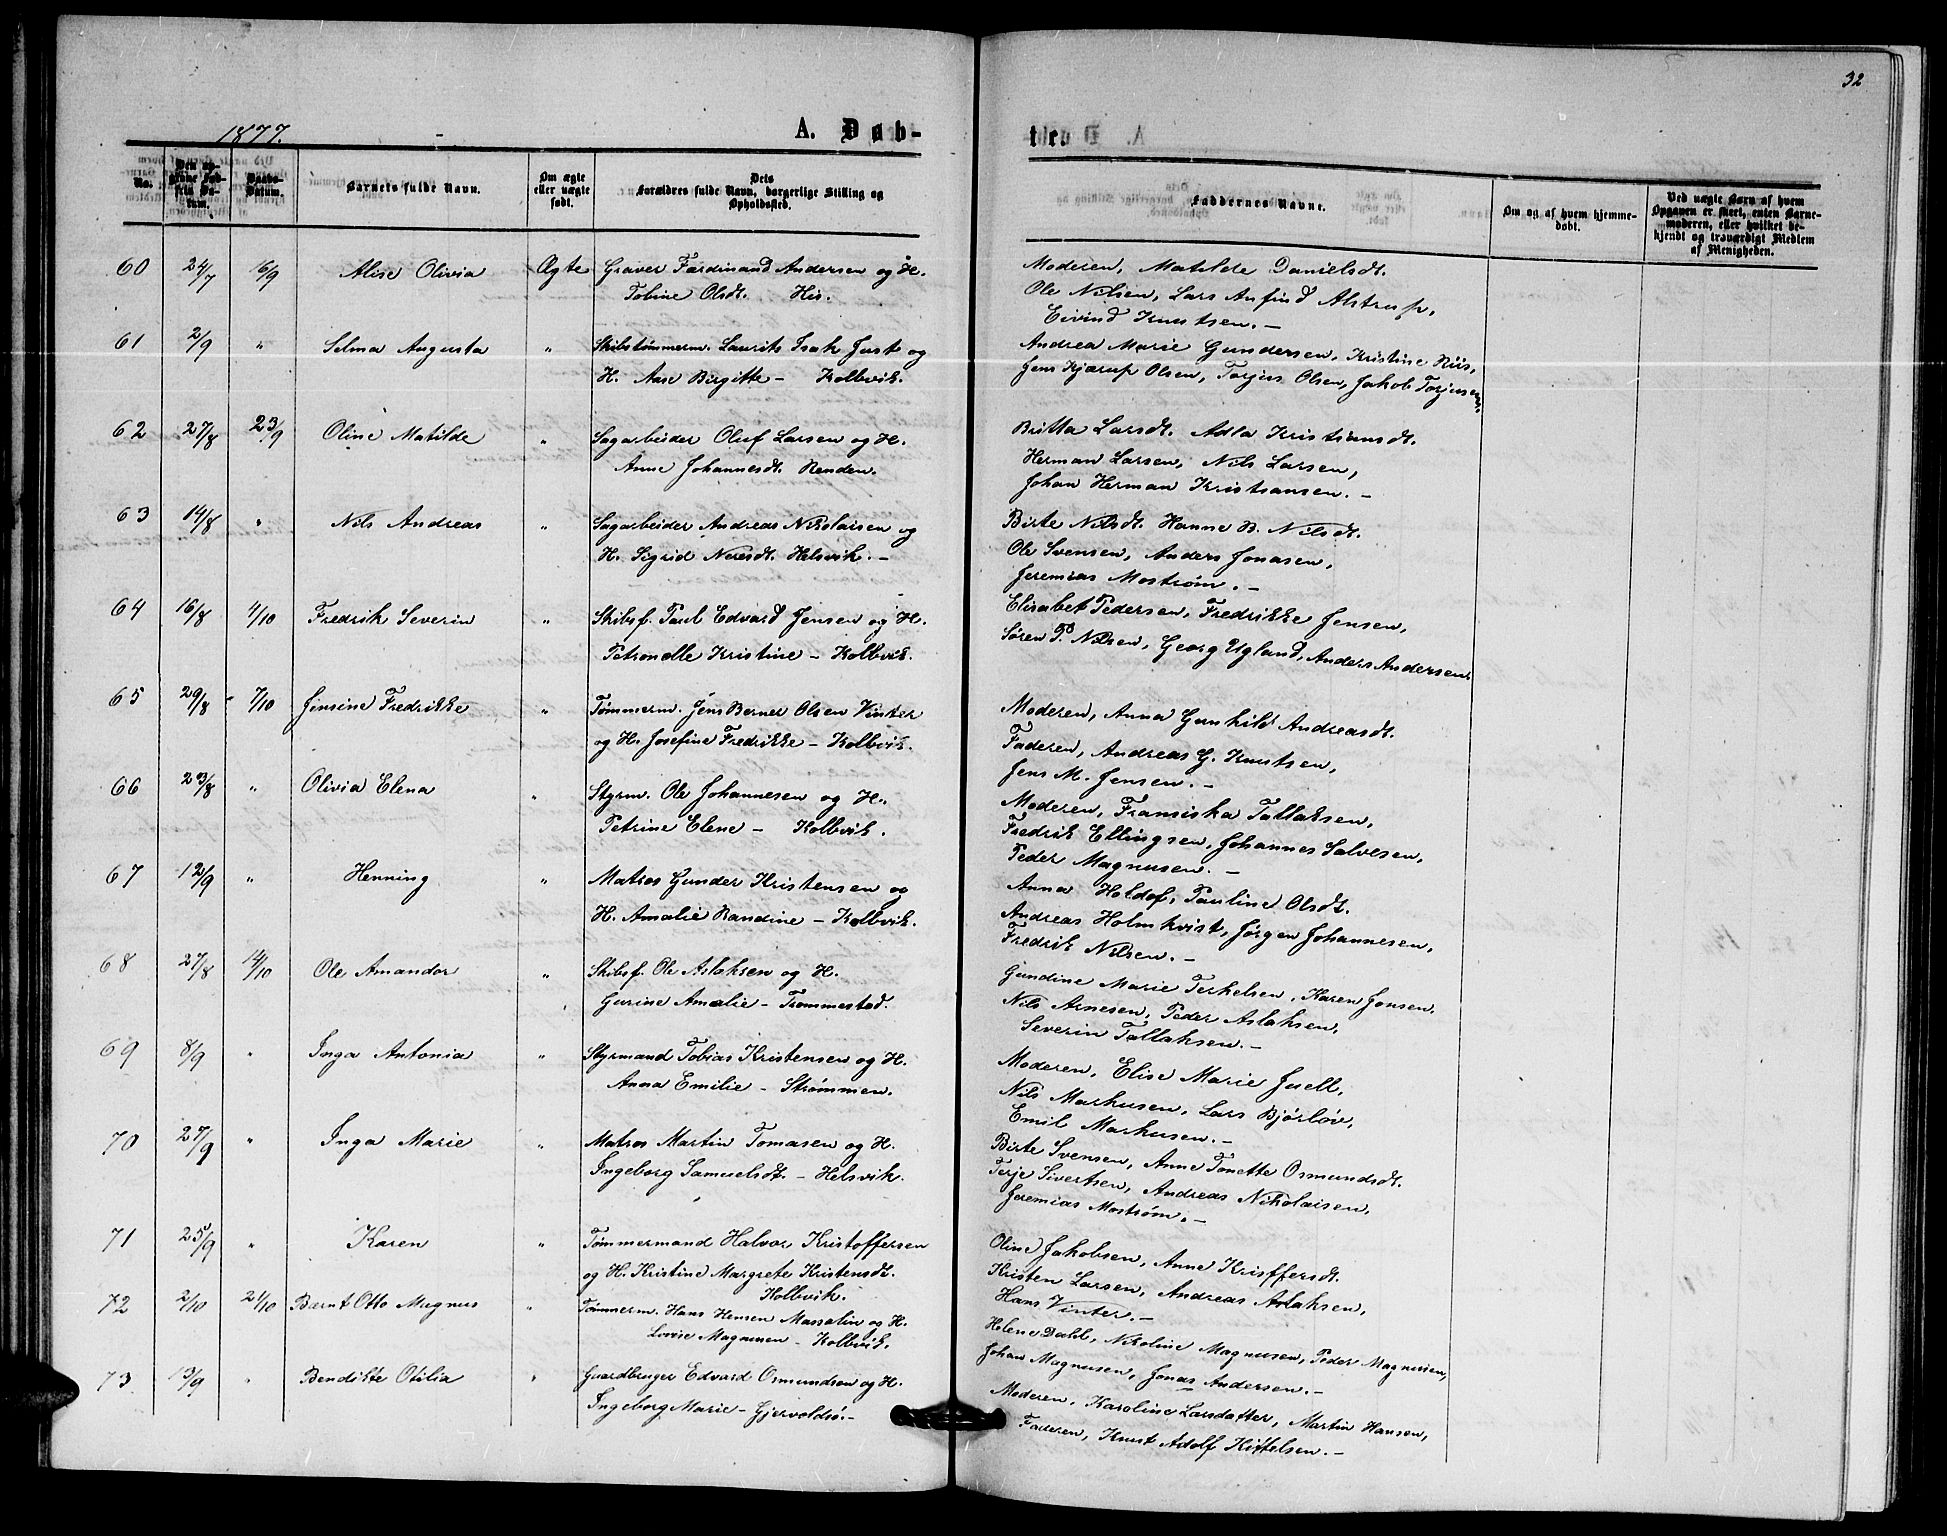 32
1877.
A. Døb-
te.
No.
Den opgivne Fødsels Datum.
Daabs-Datum.
Barnets fulde Navn.
Om ægte eller uægte født.
Dets Forældres fulde Navn, borgerlige Stilling og Opholdssted.
Faddernes Navne.
Om og af hvem hjemmedøbt.
Ved uægte Børn af hvem Opgaven er skeet, enten Barnemoderen, eller hvilket bekjendt og troværdigt Medlem af Menigheden.
60 24/7 16/9 Alise Olivia Ægte Graver Ferdinand Andersen og H.
Tobine Olsdt. His.
Moderen, Matilde Danielsdt.
Ole Nilsen, Lars Anfind Alstrup,
Eivind Knutsen. -
61 2/9 " Selma Augusta " Skibstømmerm. Laurits Isak Just og
H. Aase Birgitte - Kolbvik.
Andrea Marie Gundersen, Kristine Riis,
Jens Kjærup Olsen, Torjus Olsen, Jakob Torjusen.
62 27/8 23/9 Oline Matilde " Sagarbeider Oluf Larsen og H.
Anne Johannesdt. Renden.
Britta Larsdt. Adla Kristiansdt.
Herman Larsen, Nils Larsen,
Johan Herman Kristiansen. -
63 14/8 " Nils Andreas " Sagarbeider Andreas Nikolaisen og
H. Sigrid Nilsdt. Helsvik. -
Birte Nilsdt. Hanne B. Nilsdt.
Ole Svensen, Anders Jonasen,
Jeremias Mostrøm. -
64 16/8 4/10 Fredrik Severin " Skibsf. Paul Edvard Jensen og H.
Petronelle Kristine - Kolbvik.
Elisabet Pedersen, Fredrikke Jensen,
Søren P. Nilsen, Georg Ugland, Anders Andersen.
65 29/8 7/10 Jensine Fredrikke " Tømmerm. Jens Berner Olsen Vinter
og H. Josefine Fredrikke - Kolbvik.
Moderen, Anna Gunhild Andreasdt.
Faderen, Andreas G. Knutsen,
Jens M. Jensen. -
66 23/8 " Olivia Elena " Styrm. Ole Johannesen og H.
Petrine Elene - Kolbvik.
Moderen, Fransiska Tallaksen,
Fredrik Ellingsen, Johannes Salvesen,
Peder Magnusen. -
67 12/9 " Henning " Matros Gunder Kristensen og
H. Amalie Randine - Kolbvik.
Anna Holdof, Pauline Olsdt.
Andreas Holmkvist, Jørgen Johannesen,
Fredrik Nilsen. -
68 27/8 14/10 Ole Amandor " Skibsf. Ole Aslaksen og H.
Gurine Amalie - Trommestad.
Gundine Marie Terkelsen, Karen Jonsen,
Nils Arnesen, Peder Aslaksen,
Severin Tallaksen. -
69 8/9 " Inga Antonia " Styrmand Tobias Kristensen og H.
Anna Emilie - Strømmen.
Moderen, Elise Marie Juell,
Nils Markusen, Lars Bjørløv,
Emil Markusen. -
70 27/9 " Inga Marie " Matros Martin Tomasen og H.
Ingeborg Samuelsdt. - Helsvik.
Birte Svensen, Anne Tonette Osmundsdt.
Terje Sivertsen, Andreas Nikolaisen,
Jeremias Mostrøm. -
71 25/9 " Karen " Tømmermand Halvor Kristoffersen
og H. Kristine Margrete Kristensdt.
Kolbvik.
Oline Jakobsen, Anne Kristffersdt.
Kristen Larsen, Andreas Aslaksen,
Hans Vinter. -
72 2/10 21/10 Bernt Otto Magnus " Tømmerm. Hans Hensen Massalin og H.
Lovise Magnusen - Kolbvik.
Helene Dahl, Nikoline Magnusen, Peder Magnusen,
Johan Magnusen, Jonas Andersen. -
73 13/9 " Bendikte Otilia " Gaardbruger Edvard Osmundsen og H.
Ingeborg Marie - Gjervoldsø. -
Moderen, Karoline Larsdatter, Martin Hansen,
Faderen, Knut Adolf Kittelsen. -